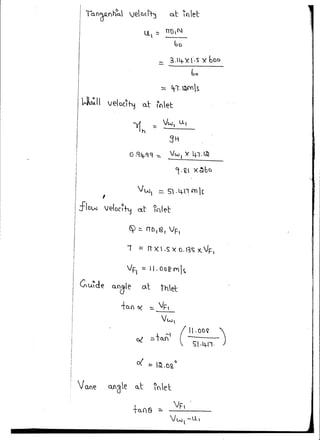 Tangential velocity at inlet
u₁ = πD₁N
60
= 3.14 × 1.5 × 600
60
= 47.12m/s
Whirll velocity at inlet
ηh = Vw₁ u₁
gH
0.9499 = Vw₁ × 47.12
9.81 × 260
Vw₁ = 51.417 m/s
flow velocity at inlet
Q = πD₁B₁ VF₁
7 = π × 1.5 × 0.135 × VF₁
VF₁ = 11.008 m/s
Guide angle at inlet
tan α = VF₁
Vw₁
α = tan⁻¹ ( 11.008
51.417 )
α = 12.08°
Vane angle at inlet
tanθ = VF₁
Vw₁ - u₁